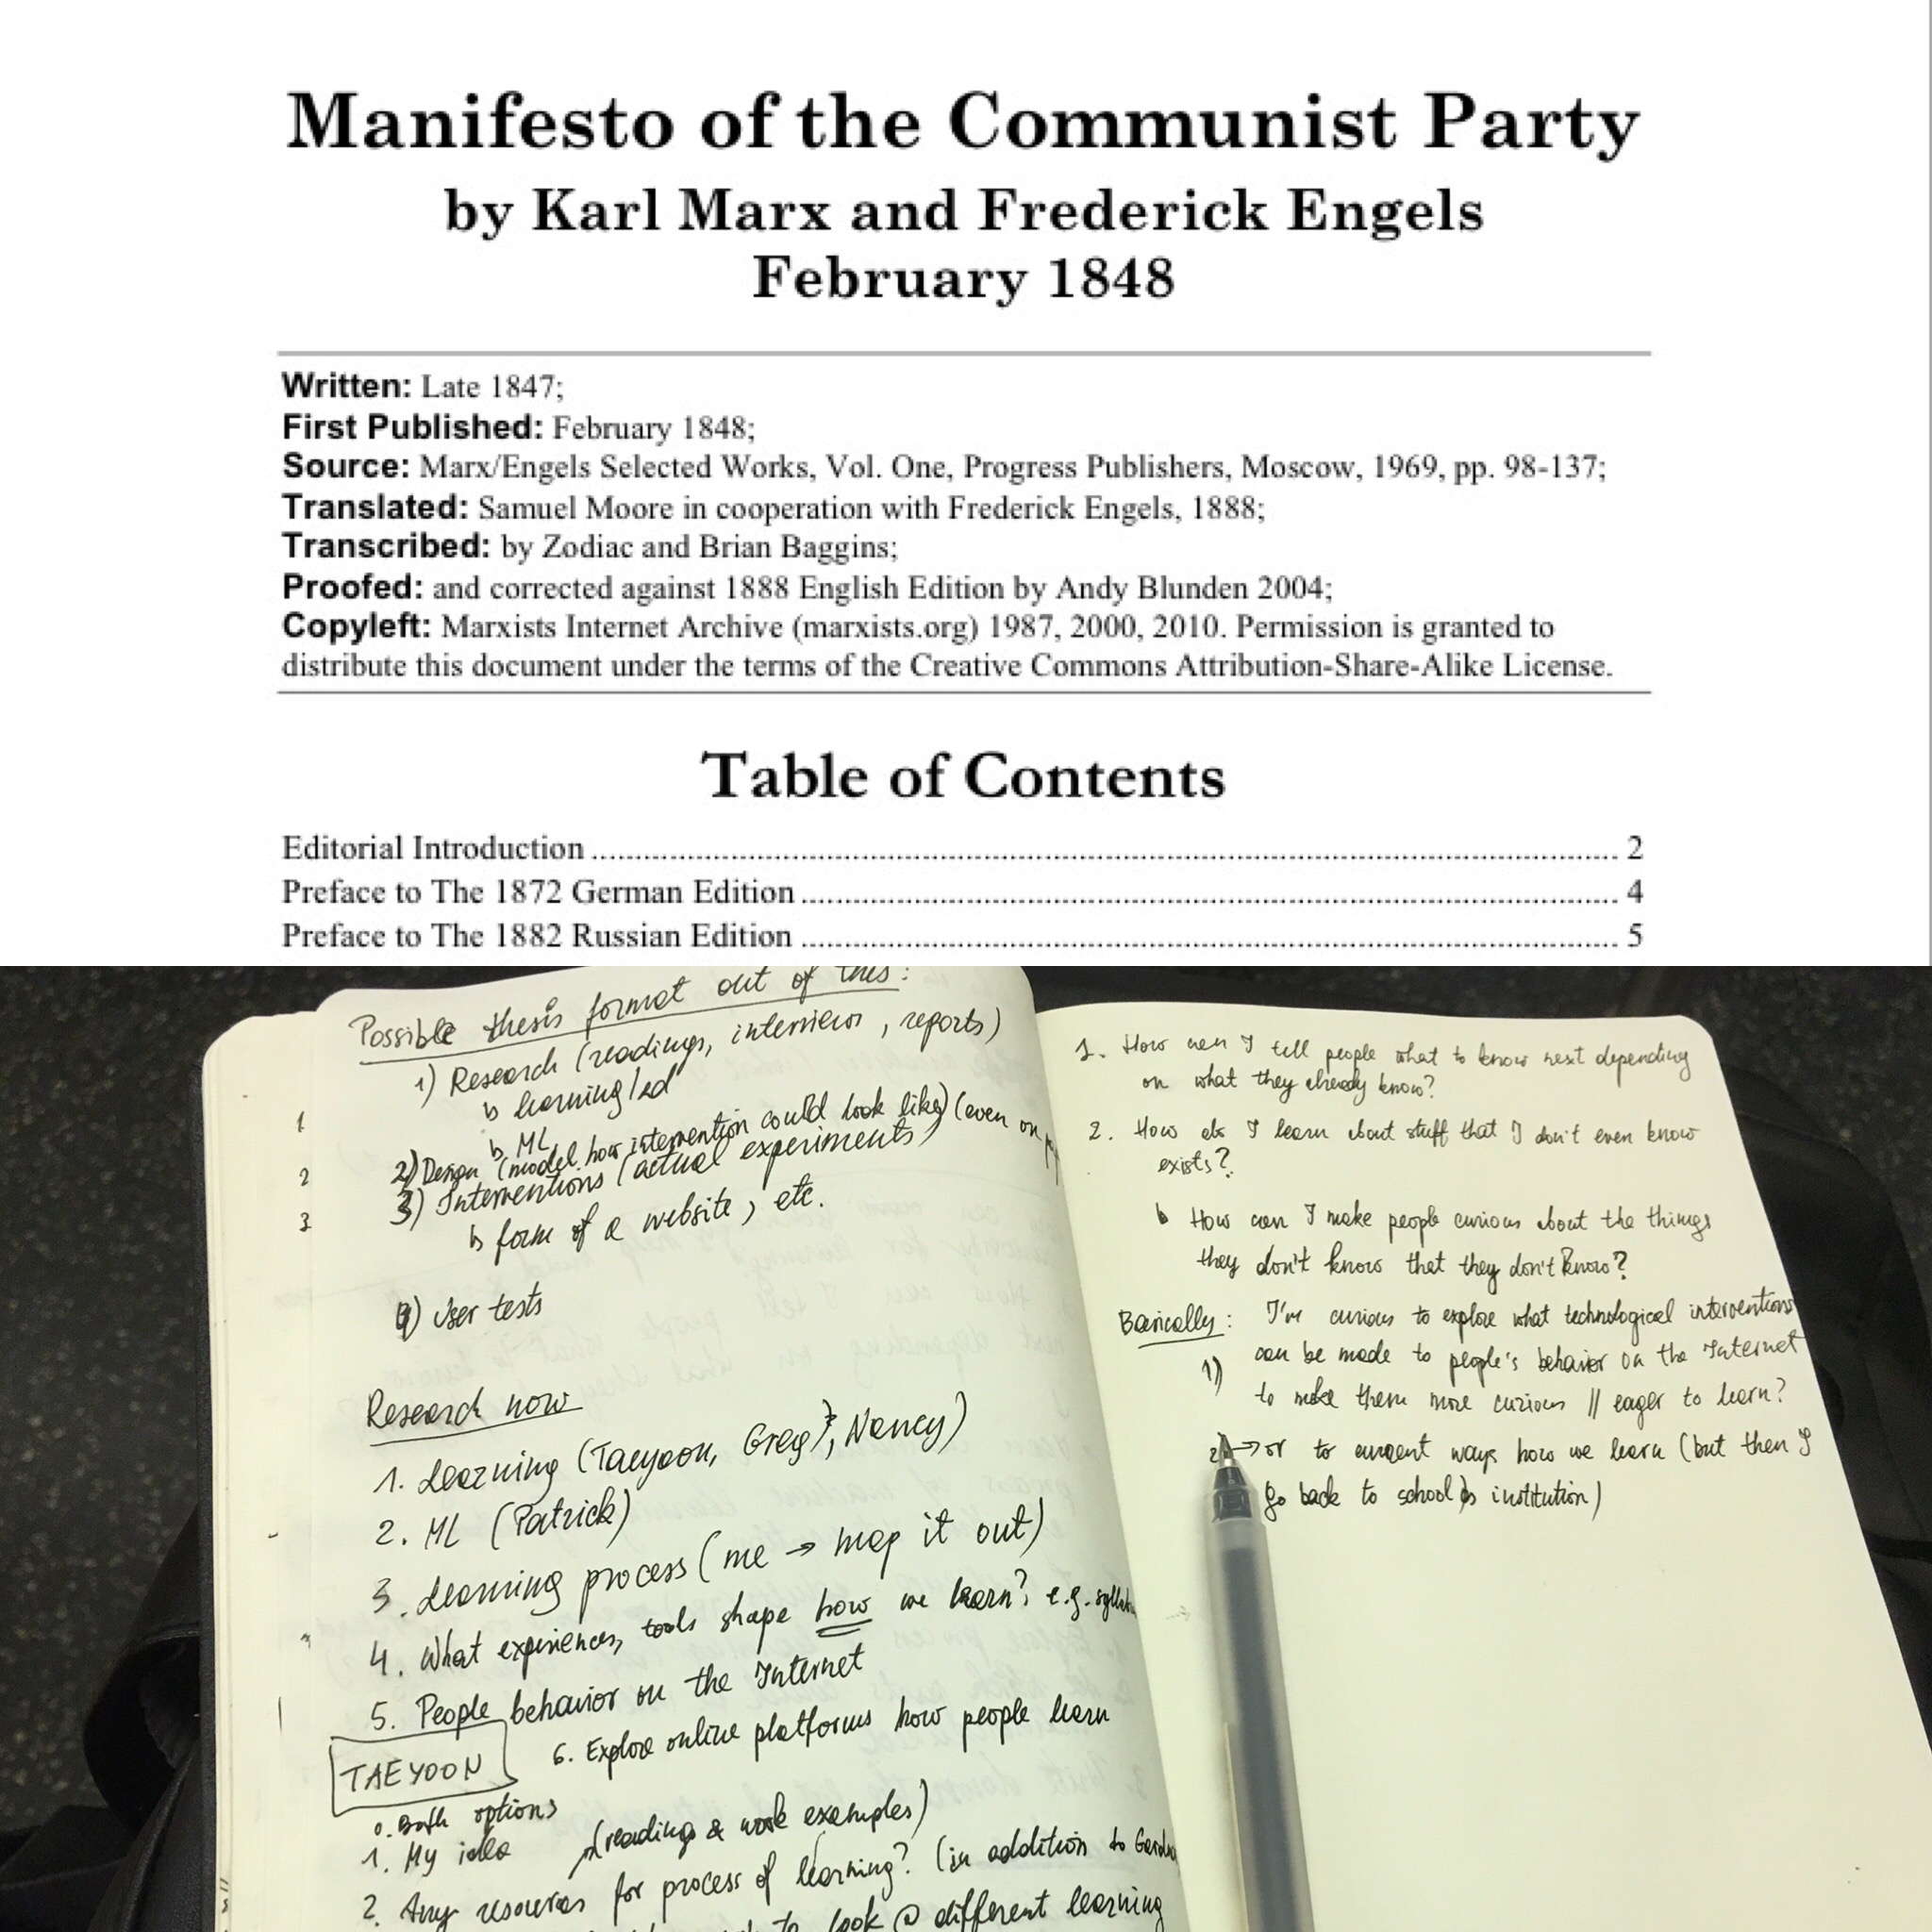 Manifesto of the Communist Party
by Karl Marx and Frederick Engels
February 1848
Written: Late 1847;
First Published: February 1848;
Source: Marx/Engels Selected Works, Vol. One, Progress Publishers, Moscow, 1969, pp. 98-137;
Translated: Samuel Moore in cooperation with Frederick Engels, 1888;
Transcribed: by Zodiac and Brian Baggins;
Proofed: and corrected against 1888 English Edition by Andy Blunden 2004;
Copyleft: Marxists Internet Archive (marxists.org) 1987, 2000, 2010. Permission is granted to
distribute this document under the terms of the Creative Commons Attribution-Share-Alike License.
Table of Contents
Editorial Introduction 2
Preface to The 1872 German Edition 4
Preface to The 1882 Russian Edition 5
Possible thesis format out of this:
1) Research (readings, interviews, reports)
learning/ed
ML
2) Design (model how intervention could look like) (even on
3) Interventions (actual experiments)
form of a website, etc.
4) User tests
Research now
1. Learning (Taeyoon, Greg, Nancy)
2. ML (Patrick)
3. Learning process (me → map it out)
4. What experiences, tools shape how we learn? e.g.
5. People behavior on the Internet
6. Explore online platforms how people learn
TAEYOON
0. Both options
1. My idea
(readings & work examples)
2. Any resources for process of learning? (in addition to
look @ different learning
1
2
3
1. How can I tell people what to know next depending
on what they already know?
2. How do I learn about stuff that I don't even know
exists?
How can I make people curious about the things
they don't know that they don't know?
Basically: I'm curious to explore what technological interventions
1) can be made to people's behavior on the Internet
to make them more curious // eager to learn?
2) → or to current ways how we learn (but then I
go back to school as institution)